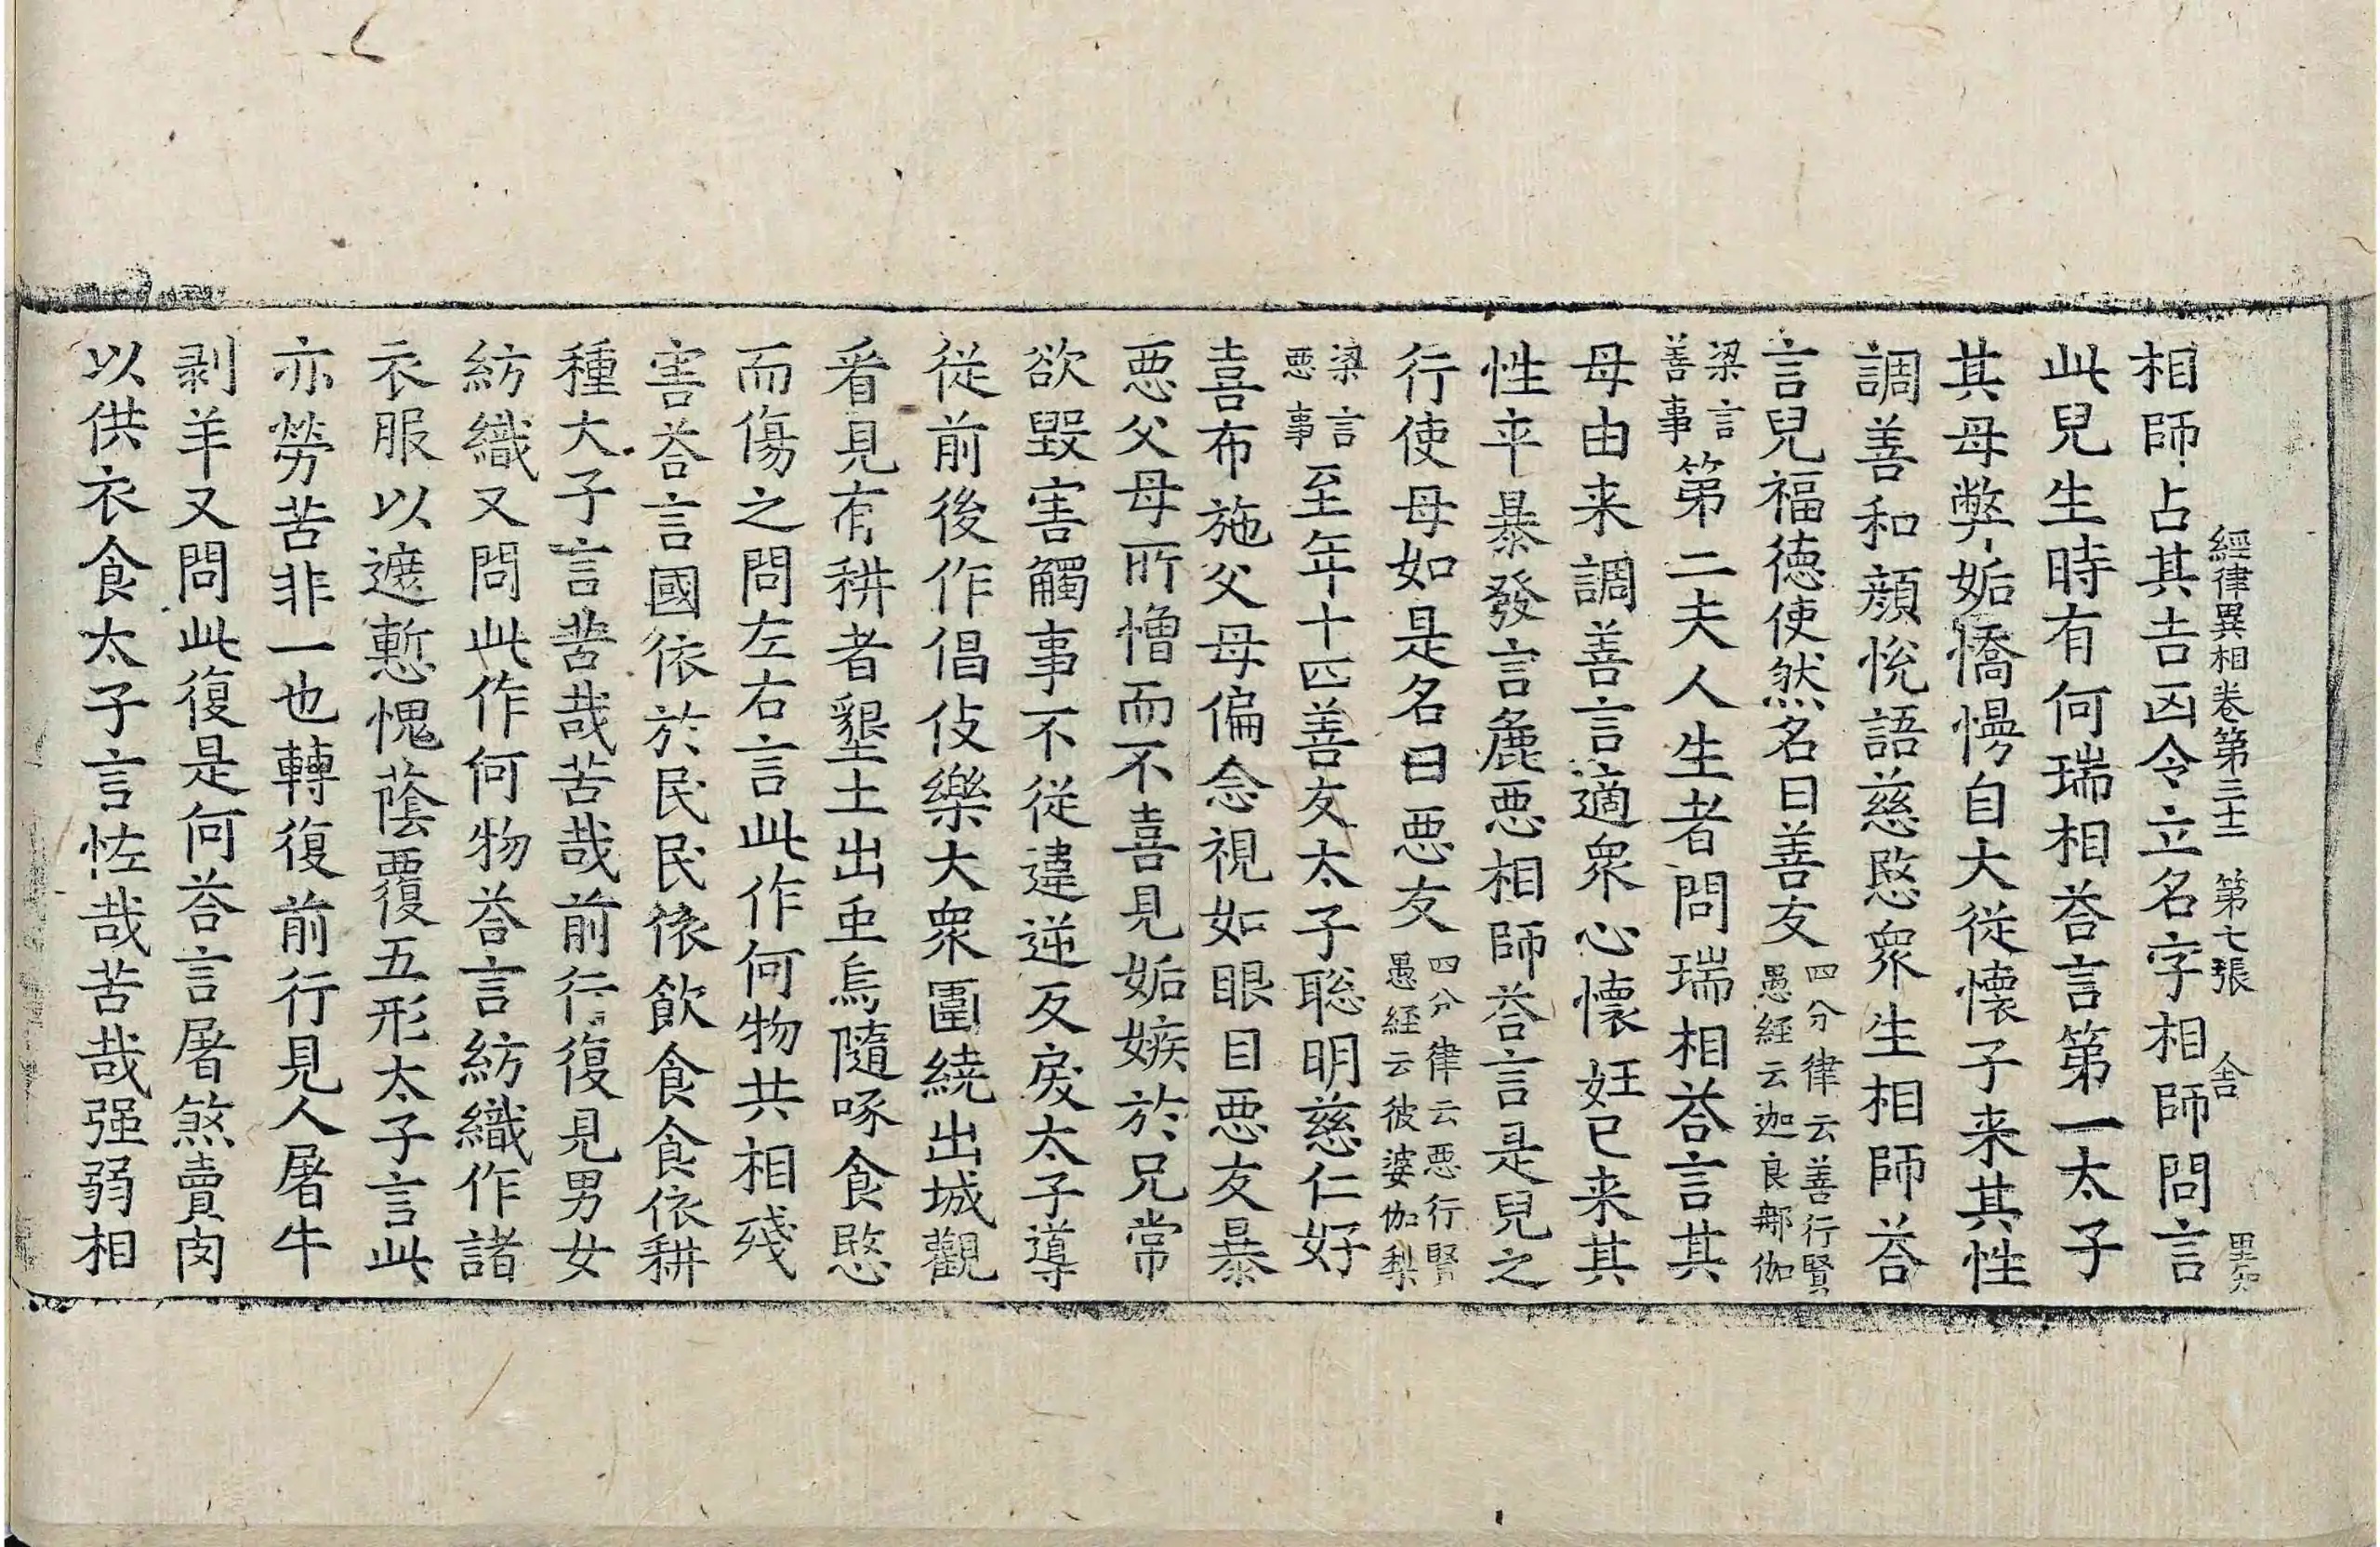 經律異相卷第三十二 第七張 舍
相師占其吉凶令立名字相師問言
此兒生時有何瑞相荅言第一太子
其母弊妬憍慢自大從懷子来其性
調善和顔悅語慈愍衆生相師荅
言兒福德使然名曰善友四分律云善行賢愚經云迦良郍伽
梁言善事第二夫人生者問瑞相荅言其
母由来調善言適衆心懷妊已来其
性卒暴發言麁惡相師荅言是兒之
行使母如是名曰惡友四分律云惡行賢愚經云彼婆伽梨
梁言惡事至年十四善友太子聡明慈仁好
喜布施父母偏念視如眼目惡友暴
惡父母所憎而不喜見妬嫉於兄常
欲毀害觸事不從違逆反戾太子導
從前後作倡伎樂大衆圍繞出城觀
看見有耕者墾土出虫烏隨啄食愍
而傷之問左右言此作何物共相殘
害荅言國依於民民依飲食食依耕
種太子言苦哉苦哉前行復見男女
紡織又問此作何物荅言紡織作諸
衣服以遮慙愧蔭覆五形太子言此
亦勞苦非一也轉復前行見人屠牛
剥羊又問此復是何荅言屠煞賣肉
以供衣食太子言怪哉苦哉强弱相